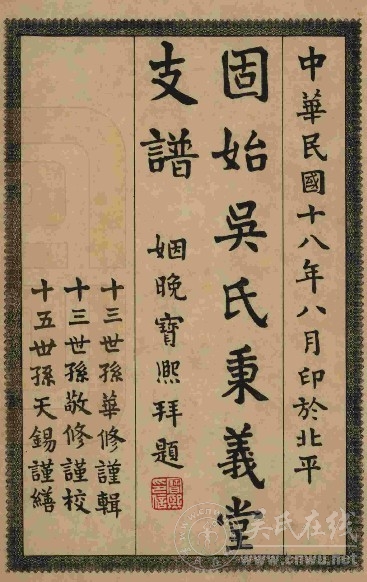 中華民國十八年八月印於北平
固始吳氏秉義堂
支譜
姻晚寶熙拜題
十三世孫華修謹輯
十三世孫敬修謹校
十五世孫天錫謹繕
吴氏在线
www.cnwu.net